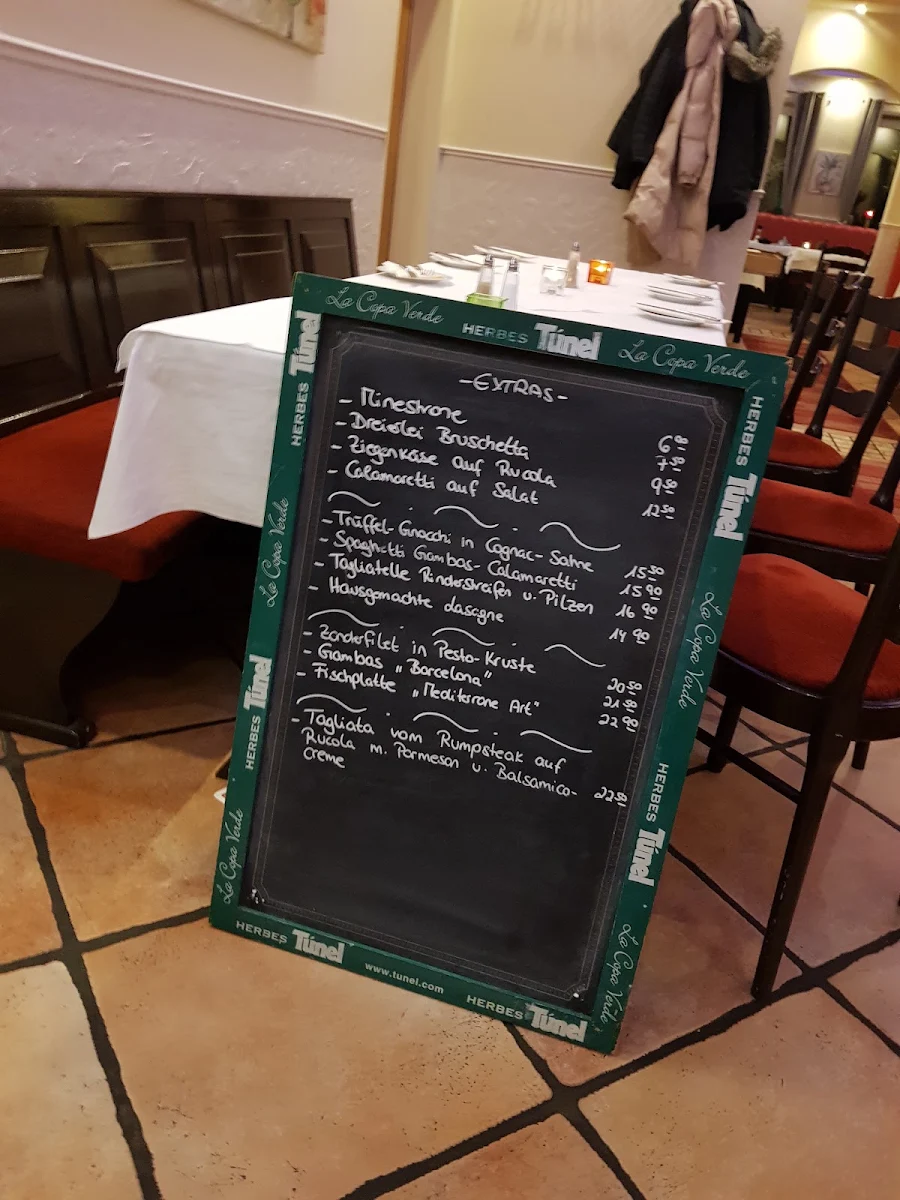 La Copa Verde HERBES Túnel La Copa Verde
-EXTRAS-
- Minestrone 6 80
- Dreierlei Bruschetta 7 50
- Ziegenkäse auf Rucola 9 50
- Calamaretti auf Salat 12 50
- Trüffel-Gnocchi in Cognac-Sahne 15 50
- Spaghetti Gambas-Calamaretti 15 90
- Tagliatelle Rinderstreifen u. Pilzen 16 90
- Hausgemachte Lasagne 14 90
- Zanderfilet in Pesto-Kruste 20 50
- Gambas „Barcelona" 21 50
- Fischplatte „Mediterrane Art" 22 90
- Tagliata vom Rumpsteak auf
Rucola m. Parmesan u. Balsamico- 22 50
creme
HERBES Túnel
La Copa Verde
HERBES Túnel
La Copa Verde
HERBES Túnel
La Copa Verde
HERBES Túnel
La Copa Verde
HERBES Túnel www.tunel.com HERBES Túnel